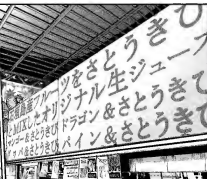 フルーツをさとうきび
とMIXしたオリジナル生ジュース
マンゴー&さとうきび ドラゴン&さとうきび
さとうきび パイン&さとうきび